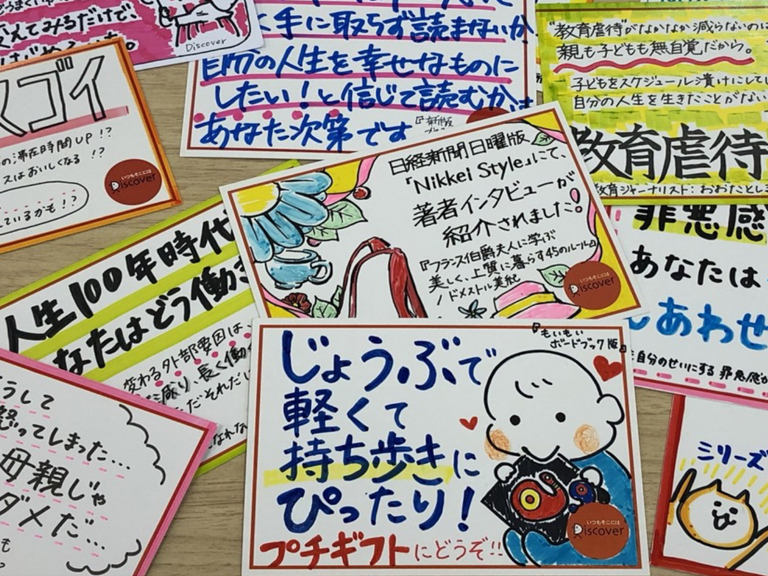 えてみるだけで、
Discover
く手に取らず読まないか
自分の人生を幸せなものに
したい！と信じて読むかは
あなた次第です
『新版
"教育虐待"がなかなか減らないのは
親も子どもも無自覚だから。
子どもをスケジュール漬けにして
自分の人生を生きたことがない
教育虐待
教育ジャーナリスト：おおたとし
スゴイ
の滞在時間UP!?
スはおいしくなる!?
しているかも!?
いつもそこには
Discover
日経新聞日曜版
「Nikkei Style」にて、
著者インタビューが
紹介されました。
『フランス伯爵夫人に学ぶ
美しく、上質に暮らす45のルール』
/ドメストル美紀
いつもそこには
Discover
罪悪感
あなたは
しあわせ
自分のせいにする 罪悪感が
人生100年時代
なたはどう働き
変わる外部要因は
減り、長く働
だそれだし
じょうぶで
軽くて
持ち歩きに
ぴったり!
プチギフトにどうぞ!!
『もいもい
ボードブック版』
いつもそこには
Discover
うして
怒ってしまった…
母親じゃ
ダメだ…
シリーズ